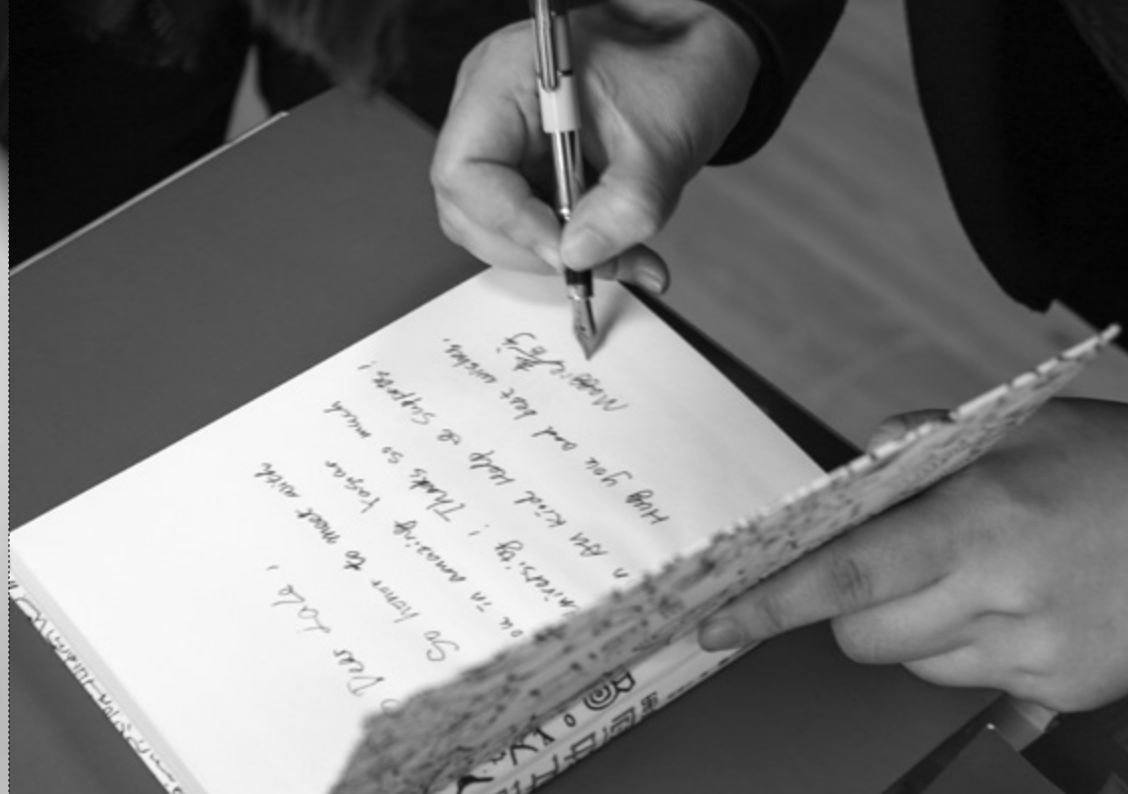 Dear Lala,
So honor to meet with
ou in amazing Yasar
niversity! Thanks so much
n All kind Help & Supports!
Hug you and best wishes.
Maggie